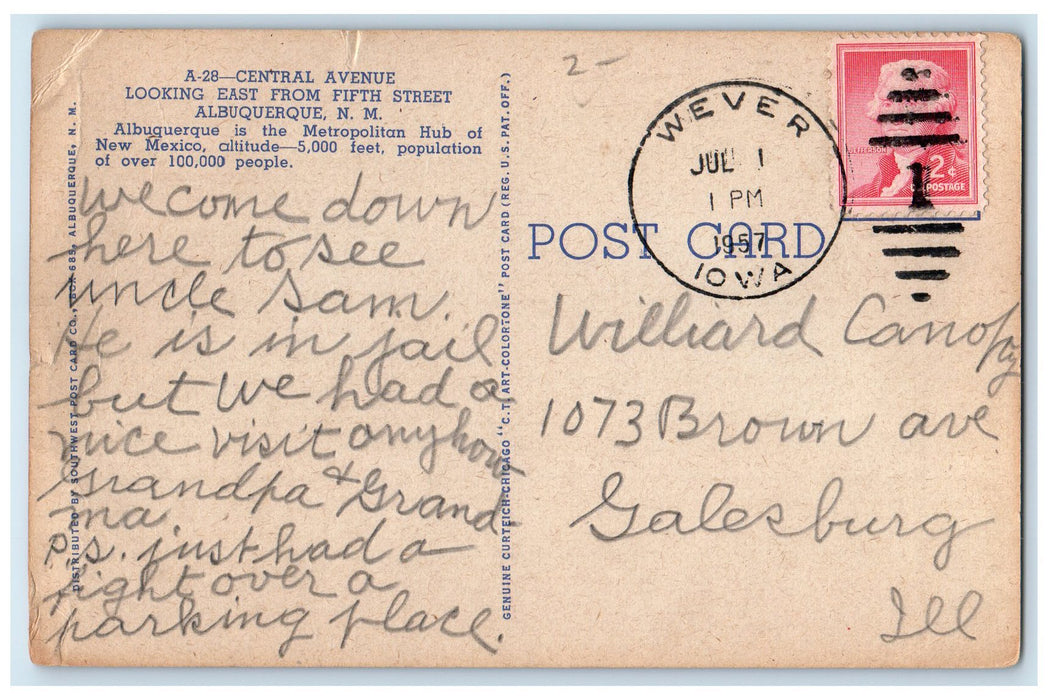 A-28—CENTRAL AVENUE
LOOKING EAST FROM FIFTH STREET
ALBUQUERQUE, N. M.
Albuquerque is the Metropolitan Hub of
New Mexico, altitude—5,000 feet, population
of over 100,000 people.
we come down
here to see
uncle Sam.
He is in jail
but we had a
nice visit anyhow
Grandpa & Grand-
ma.
P.s. just had a
fight over a
parking place.
DISTRIBUTED BY SOUTHWEST POST CARD CO., BOX 685, ALBUQUERQUE, N. M.
GENUINE CURTEICH-CHICAGO "C.T. ART-COLORTONE" POST CARD (REG. U.S. PAT. OFF.)
2-
WEVER
JUL 1
1 PM
1957
IOWA
JEFFERSON
2¢
U.S. POSTAGE
1
POST CARD
Williard Canopy
1073 Brown ave
Galesburg
Ill